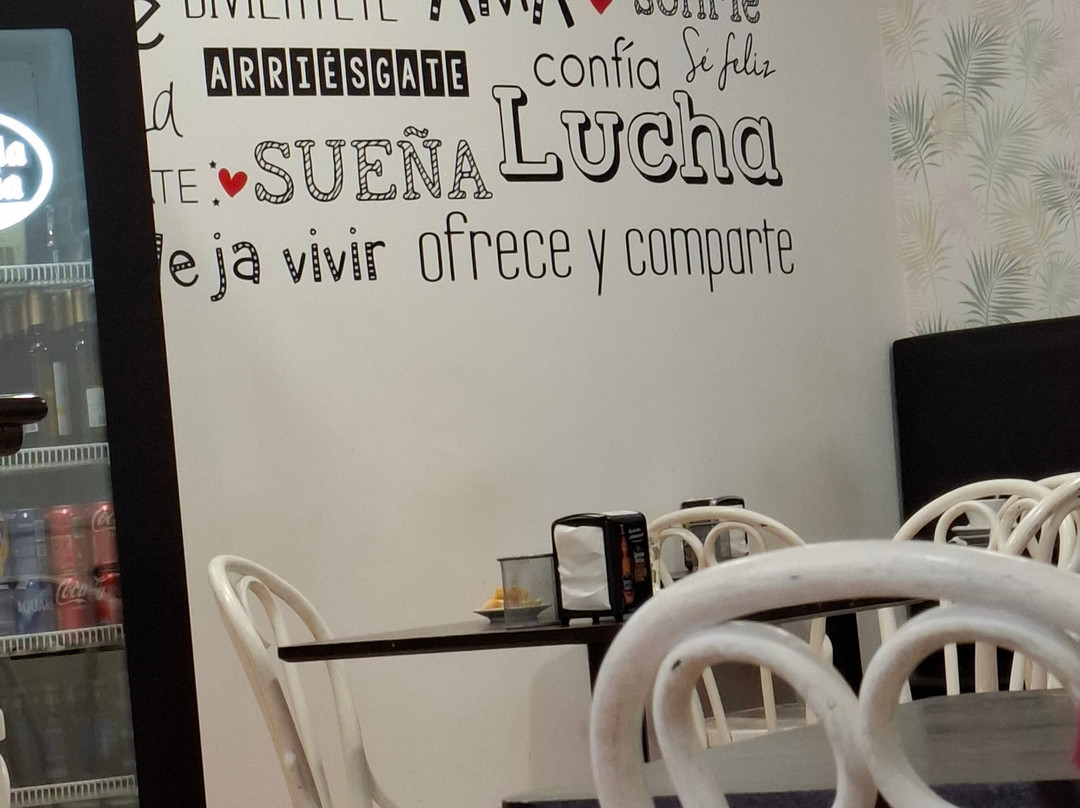 DIVIÉRTETE AMA sonríe
ARRIÉSGATE confía Sé feliz
SUEÑA Lucha
deja vivir ofrece y comparte
Coca-Cola
AQUARIUS